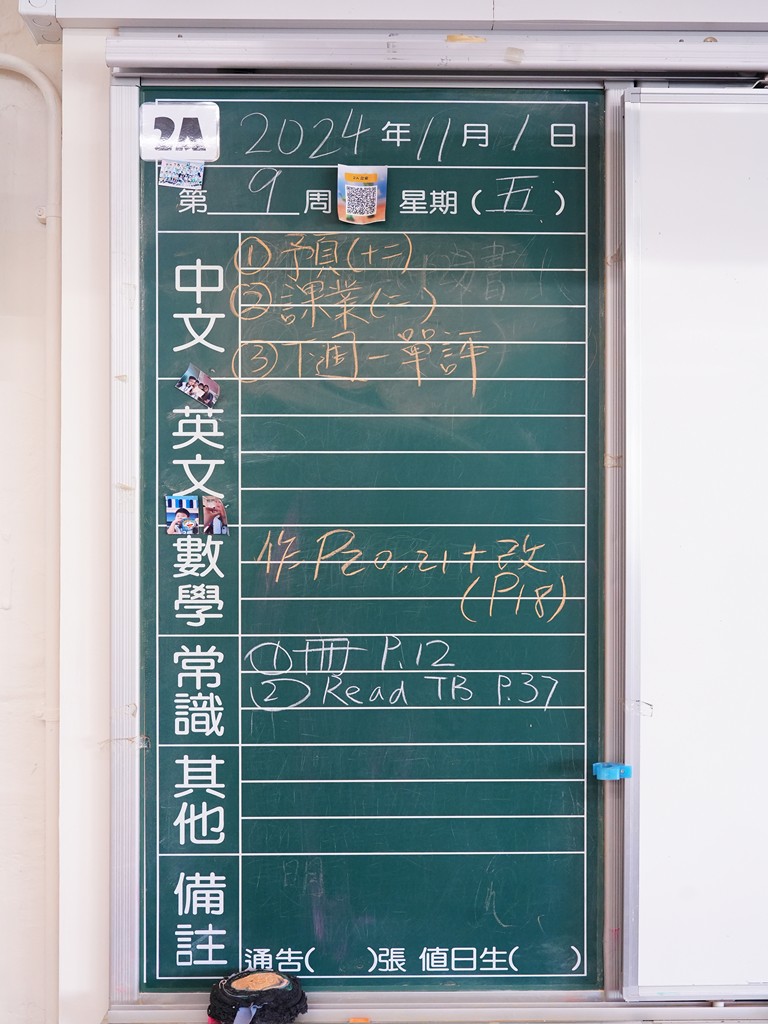 2A
2024年11月1日
第9周 星期(五)
中文
①予頁(十二)
②課業(二)
③下週一單評
英文
數學
作P20,21+改
(P18)
常識
①冊 P.12
②Read TB P.37
其他
備註
通告( )張 值日生( )